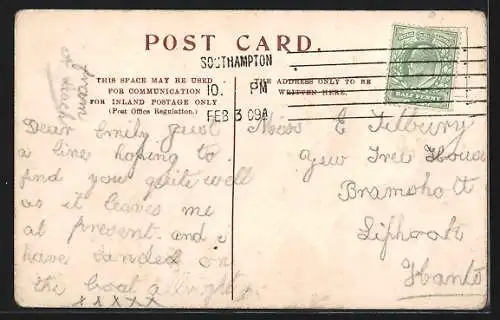 POST CARD.
THIS SPACE MAY BE USED
FOR COMMUNICATION
FOR INLAND POSTAGE ONLY
(Post Office Regulation.)
THE ADDRESS ONLY TO BE
WRITTEN HERE.
SOUTHAMPTON
10. PM
FEB 3 09A
HALFPENNY
from
Dear Emily just
a line hoping to
find you quite well
as it leaves me
at present. and i
have landed on
the boat allright
xxxxx
Miss E Tilbury
Yew Tree House
Bramshott
Liphook
Hants